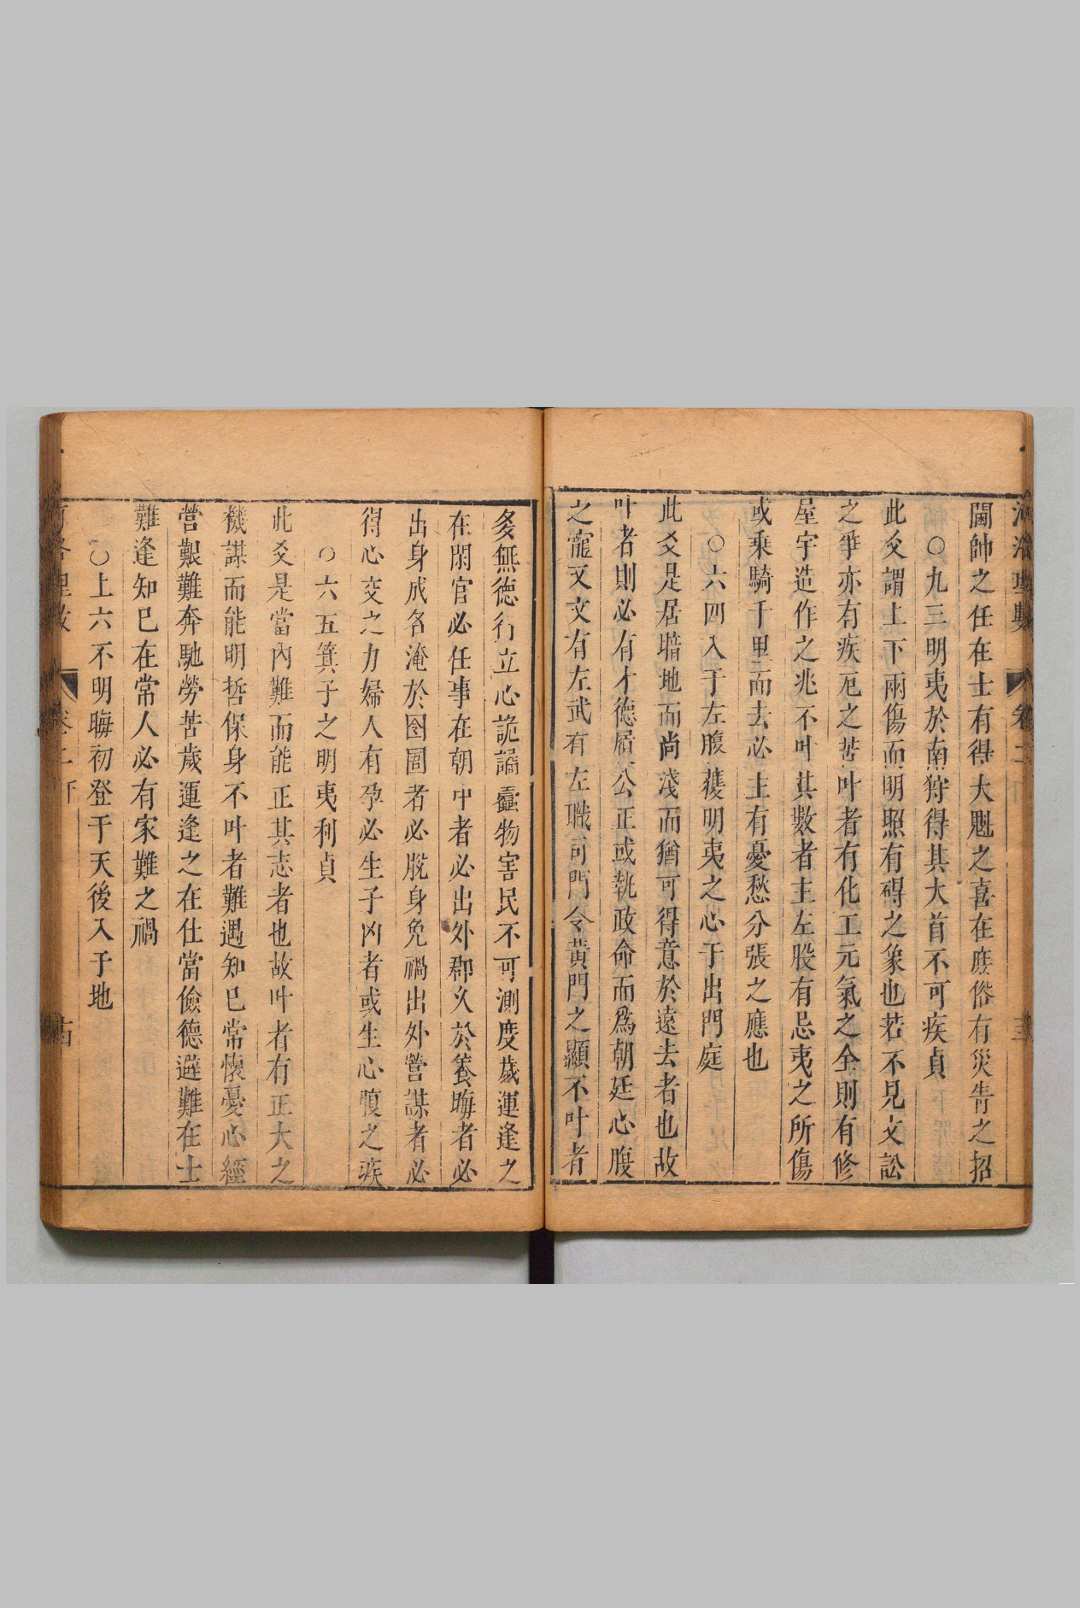 閫帥之任在士有得大魁之喜在庶俗有災眚之招
○九三明夷於南狩得其大首不可疾貞
此爻謂上下兩傷而明照有礙之象也若不見文訟
之爭亦有疾厄之苦叶者有化工元氣之全則有修
屋宇造作之兆不叶其數者主左股有忌夷之所傷
或乗騎千里而去必主有憂愁分張之應也
○六四入于左腹獲明夷之心于出門庭
此爻是居暗地而尚淺而猶可得意於遠去者也故
叶者則必有才德居公正或執政命而爲朝廷心腹
之寵又文有左武有左職司門令黄門之顯不叶者
多無德行立心詭譎蠹物害民不可測度歲運逢之
在閑官必任事在朝中者必出外郡久於養晦者必
出身成名淹於囹圄者必脫身免禍出外營謀者必
得心交之力婦人有孕必生子凶者或生心腹之疾
○六五箕子之明夷利貞
此爻是當內難而能正其志者也故叶者有正大之
機謀而能明哲保身不叶者難遇知已常懷憂心經
營艱難奔馳勞苦歲運逢之在仕當儉德避難在士
難逢知已在常人必有家難之禍
○上六不明晦初登于天後入于地